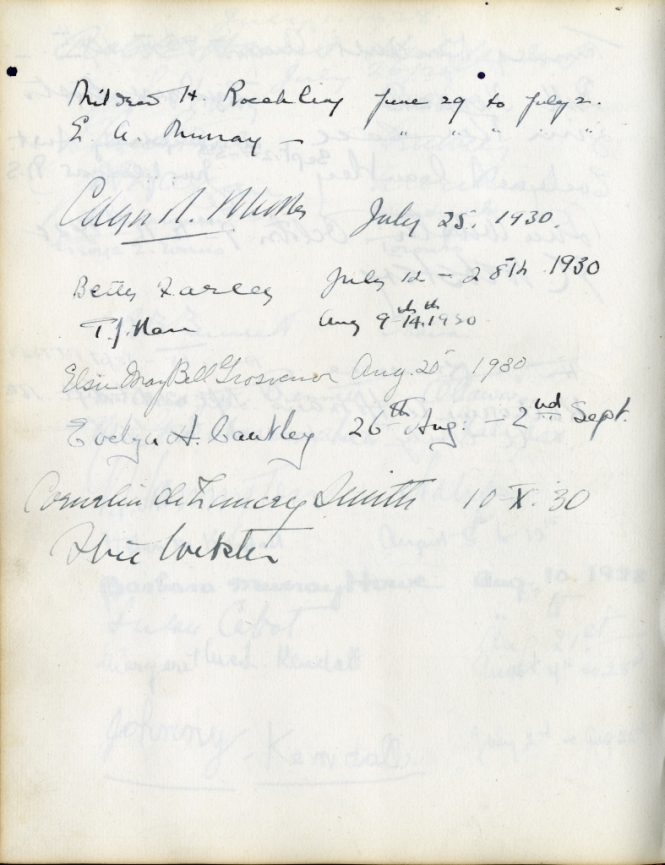 Mildred H. Roebling June 29 to July 2.
E. A. Murray — " " " " "
July 25. 1930.
Betty Farley July 12 - 28th 1930
T.J. Aug 9th-14th 1930
Elsie May Bell Grosvenor Aug. 25 1930
Evelyn A. Cautley 26th Aug: - 2nd Sept.
Cornelia de Lancey Smith 10-X-30
Webster